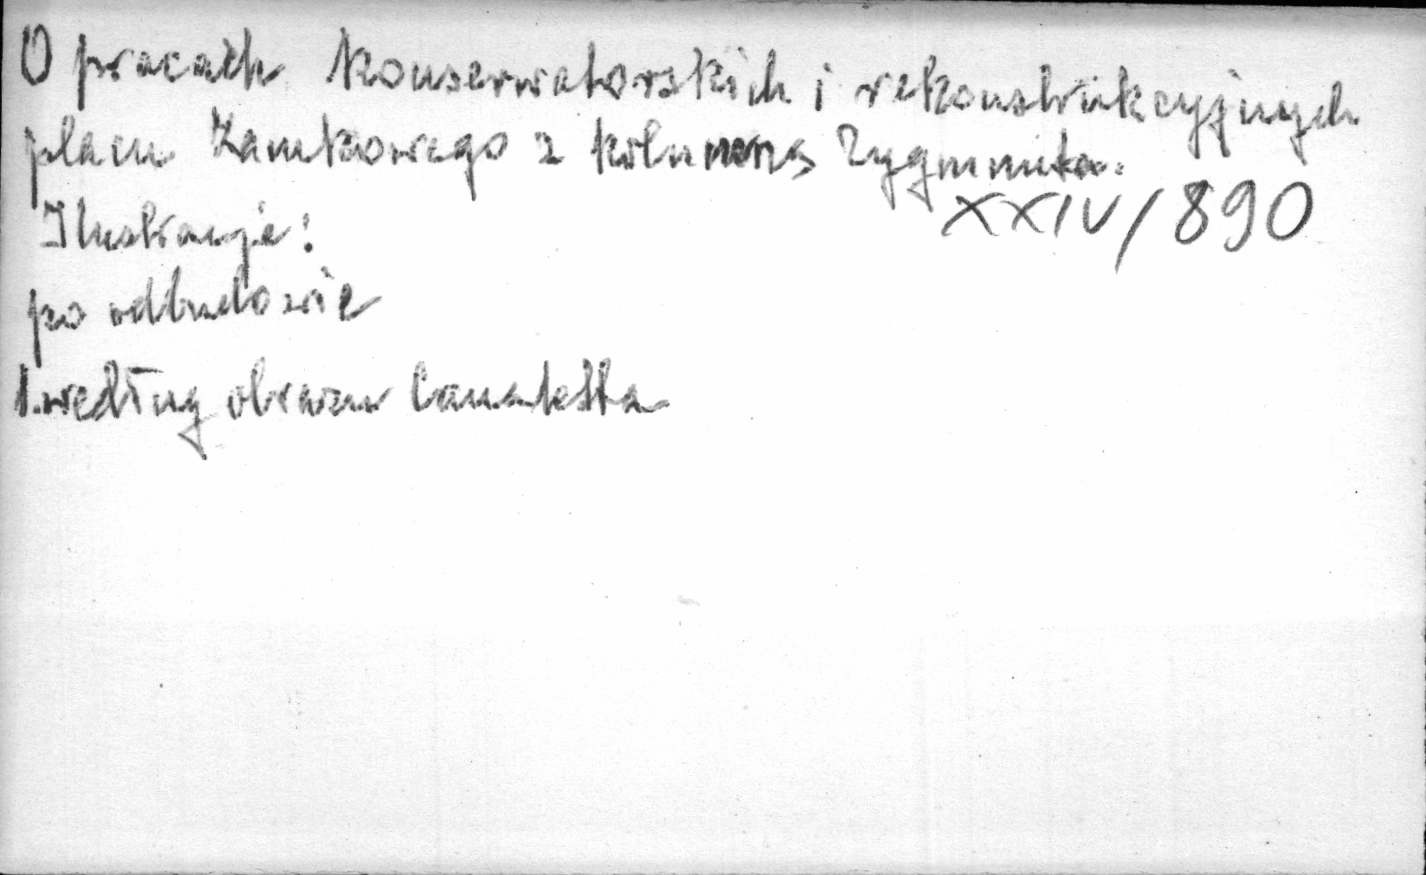 O pracach konserwatorskich i rekonstrukcyjnych
placu Zamkowego z kolumną Zygmunta.
XXIV/890
Ilustracje:
po odbudowie
1. według obrazu Canaletta